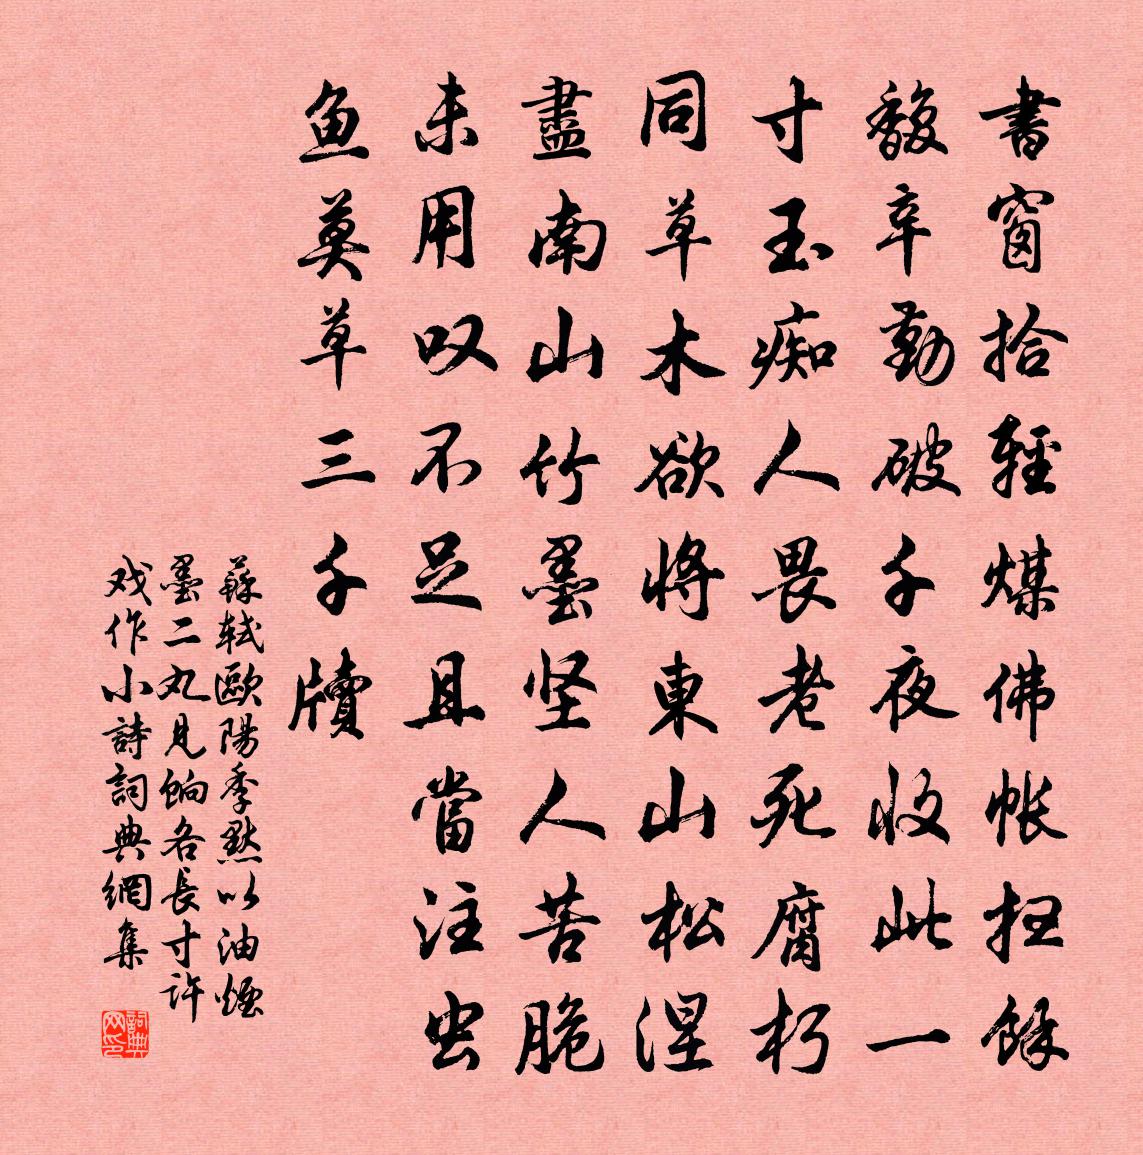 書窗拾輕煤佛帐扫餘
馥辛勤破千夜收此一
寸玉痴人畏老死腐朽
同草木欲將東山松涅
盡南山竹墨坚人苦脆
未用叹不足且當注虫
鱼莫草三千牘
蘇轼歐陽季默以油煙
墨二丸見餉各長寸許
戏作小詩詞典網集
詞典网印